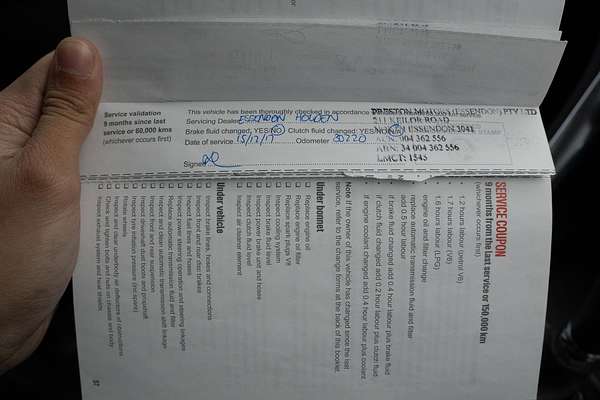 Service validation
9 months since last
service or 60,000 kms
(whichever occurs first)
This vehicle has been thoroughly checked in accordance
Servicing Dealer ESSENDON HOLDEN
Brake fluid changed: YES/NO Clutch fluid changed: YES/NO/NA
Date of service 15/12/17 Odometer
Signed
PRESTON MOTORS (ESSENDON) PTY LTD
KEILOR ROAD
ESSENDON 3041
004 362 556
ABN: 34 004 362 556
LMCT: 1543
SERVICE COUPON
9 months from the last service or 150,000 km
(whichever occurs first)
1.2 hours labour (petrol V6)
1.7 hours labour (V8)
1.6 hours labour (LPG)
engine oil and filter change
replace automatic transmission fluid and filter
add 0.5 hour labour
if brake fluid changed add 0.4 hour labour plus brake fluid
if clutch fluid changed add 0.2 hour labour plus clutch fluid
if engine coolant changed add 0.4 hour labour plus coolant
Note If the owner of this vehicle has changed since the last
service, refer to the change forms at the back of this booklet.
Under bonnet
Replace engine oil
Replace engine oil filter
Replace spark plugs V8
Inspect cooling system
Inspect brake fluid level
Inspect power brake unit and hoses
Inspect clutch fluid level
Inspect air cleaner element
Under vehicle
Inspect brake lines, hoses and connections
Inspect front and rear disc brakes
Inspect fuel lines and hoses
Inspect power steering operation and steering linkages
Replace automatic transmission fluid and filter
Inspect and clean automatic transmission shift linkage
Inspect front and rear suspension
Inspect driveshaft dust boots and propshaft
Inspect tyre inflation pressure (inc spare)
Inspect and clear underbody air deflectors of obstructions
Check and tighten bolts and nuts on chassis and body
Inspect exhaust system and heat shields